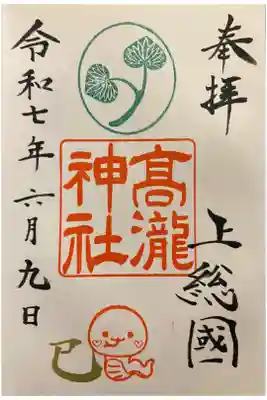 奉拝
上総國
髙瀧
神社
巳
令和七年六月九日